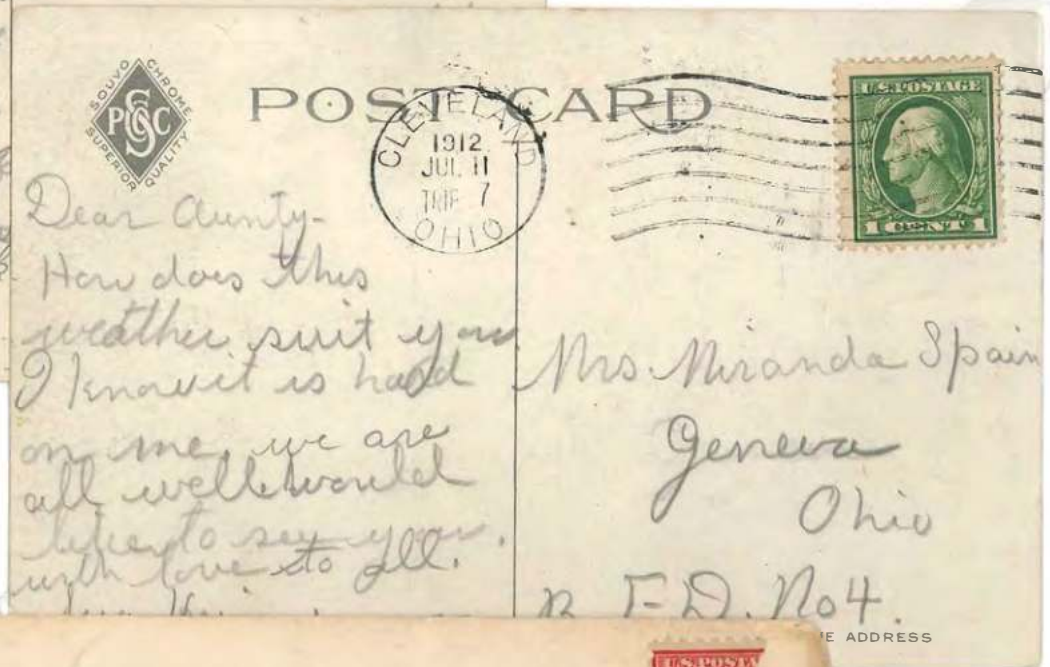 SOUVO CHROME
PCSC
SUPERIOR QUALITY
POST CARD
CLEVELAND
1912
JUL 11
TRIP 7
OHIO
U.S. POSTAGE
1 CENT 1
Dear Aunty-
How does this
weather suit you
I know it is hard
on me. we are
all well & would
like to see you.
with love to all.
Mrs. Miranda Spain
Geneva
Ohio
R F.D. No 4.
E ADDRESS
U.S. POSTA